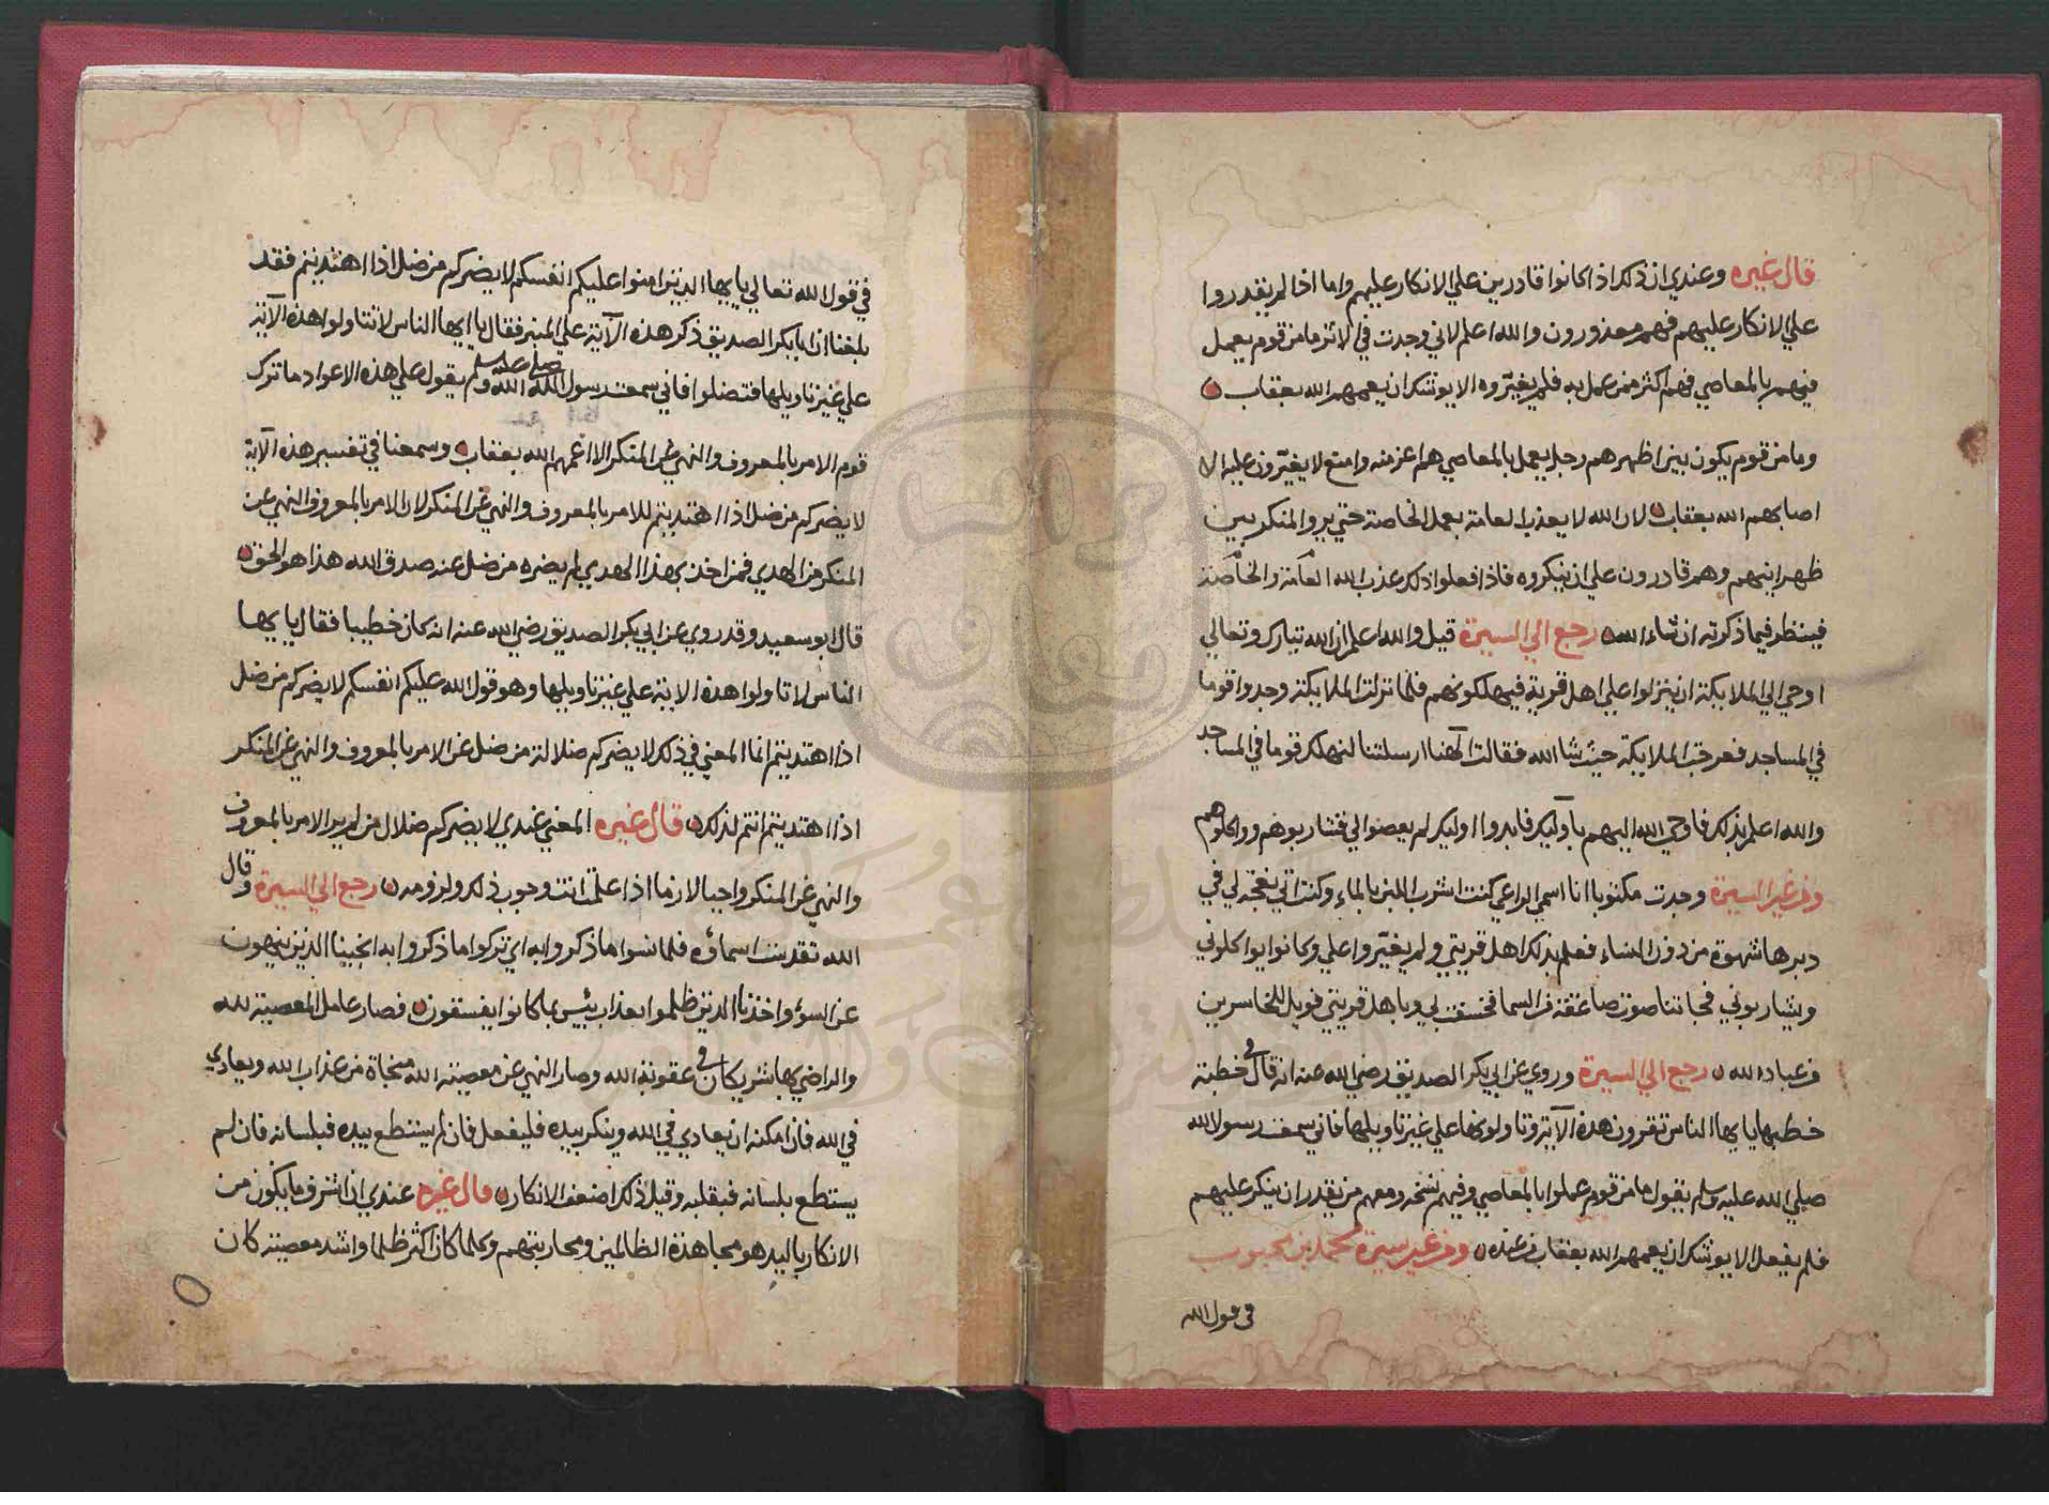 قال غيره وعندي ان ذلك اذا كانوا قادرين علي الانكار عليهم واما اذا لم يقدروا
علي الانكار عليهم فهم معذورون والله اعلم لاني وجدت في الاثر ما من قوم يعمل
فيهم بالمعاصي فهم اكثر ممن عمل به فلم يغيّروه الا يوشك ان يعمهم الله بعقاب
وما من قوم يكون بين اظهرهم رجل يعمل بالمعاصي هم اعز منه وامنع لا يغيّرون عليه الا
اصابهم الله بعقاب لان الله لا يعذب العامة بعمل الخاصة حتي يروا المنكر بين
ظهرانيهم وهم قادرون علي ان ينكروه فاذا فعلوا ذلك عذب الله العامة والخاصة
فينظر فيما ذكرته ان شاء الله رجع الي السيرة قيل والله اعلم ان الله تبارك وتعالي
اوحي الي الملايكة ان ينزلوا علي اهل قرية فيهلكونهم فلما نزلت الملايكة وجدوا قوما
في المساجد فعرجت الملايكة حيث شا الله فقالت الهنا ارسلتنا لنهلك قوما في المساجد
والله اعلم بذلك فاوحي الله اليهم باوليك فابدوا اوليك لم يعصوا لي فشاربوهم وواكلوهم
ومن غير السيرة وجدت مكتوبا انا اسمي الراعي كنت اشرب اللبن بالماء وكنت اتي نعجة لي في
دبرها شهوة من دون النساء فعلم بذلك اهل قريتي ولم يغيّروا علي وكانوا يواكلوني
ويشاربوني فجاتنا صوت صاعقة من السما فخسفت بي وباهل قريتي فويل للخاسرين
من عباد الله رجع الي السيرة وروي عن ابي بكر الصديق رضي الله عنه انه قال في خطبة
خطبها يا يها الناس تقرون هذه الآية وتاولونها علي غير تاويلها فاني سمعت رسول الله
صلي الله عليه وسلم يقول ما من قوم عملوا بالمعاصي وفيهم ومعهم من يقدر ان ينكر عليهم
فلم يفعل الا يوشك ان يعمهم الله بعقاب من عنده ومن غير سيرة محمد بن محبوب
في قول الله
في قول الله تعالي يا يها الذين امنوا عليكم انفسكم لا يضركم من ضل اذا اهتديتم فقد
بلغنا ان ابا بكر الصديق ذكر هذه الآية علي المنبر فقال يا ايها الناس لا تتاولوا هذه الآية
علي غير تاويلها فتضلوا فاني سمعت رسول الله صلى الله عليه وسلم يقول علي هذه الاعواد ما ترك
قوم الامر بالمعروف والنهي عن المنكر الا اعمهم الله بعقاب وسمعنا في تفسير هذه الآية
لا يضركم من ضل اذا اهتديتم للامر بالمعروف والنهي عن المنكر لان الامر بالمعروف والنهي عن
المنكر من الهدي فمن اخذ بهذا الهدي لم يضره من ضل عنه صدق الله هذا هو الحق
قال ابو سعيد وقد روي عن ابي بكر الصديق رضي الله عنه انه كان خطيبا فقال يا يها
الناس لا تاولوا هذه الاية علي غير تاويلها وهو قول الله عليكم انفسكم لا يضركم من ضل
اذا اهتديتم انما المعني في ذلك لا يضركم ضلالة من ضل عن الامر بالمعروف والنهي عن المنكر
اذا اهتديتم انتم لذلك قال غيره المعني عندي لا يضركم ضلال من لم ير الامر بالمعروف
والنهي عن المنكر واجبا لازما اذا علمت انت وجوب ذلك ولزومه رجع الي السيرة وقال
الله تقدست اسماؤه فلما نسوا ما ذكروا به اي تركوا ما ذكروا به انجينا الذين ينهون
عن السوء واخذنا الذين ظلموا بعذاب بئيس بما كانوا يفسقون فصار عامل المعصية لله
والراضي بها شريكان في عقوبة الله وصار النهي عن معصية الله منجاة من عذاب الله ويعادي
في الله فان امكنه ان يعادي في الله وينكر بيده فليفعل فان لم يستطع بيده فبلسانه فان لم
يستطع بلسانه فبقلبه وقيل ذلك اضعف الانكار قال غيره عندي ان اشرف ما يكون من
الانكار باليد هو مجاهدة الظالمين ومحاربتهم وكلما كان اكثر ظلما واشد معصية كان